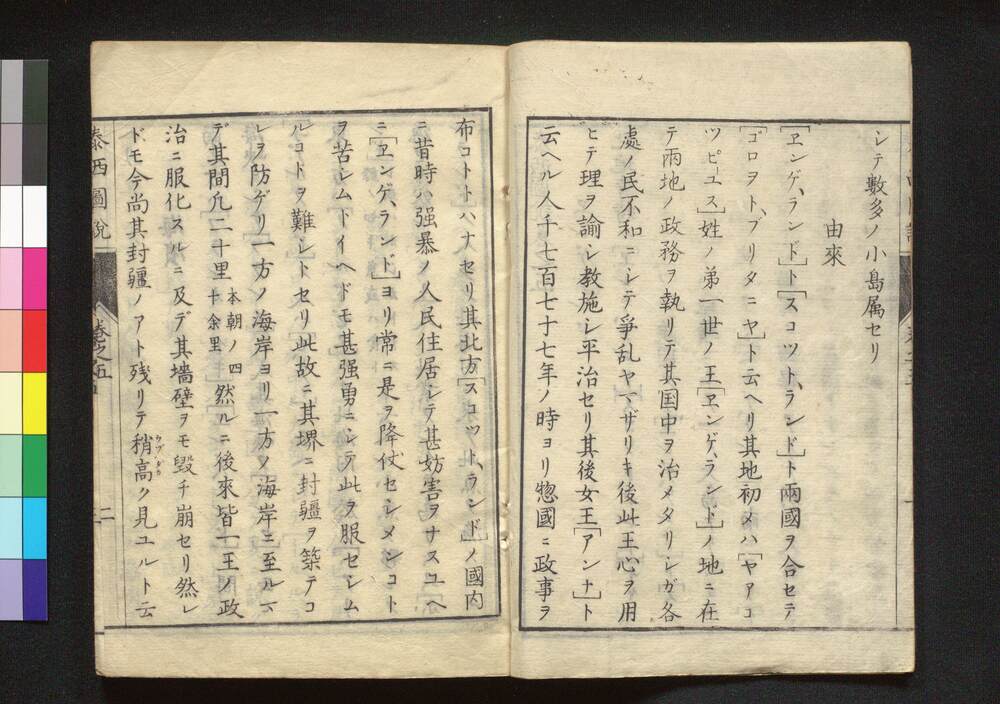 シテ數多ノ小島属セリ
由來
［ヱンゲ、ランド］ト［スコツト、ランド］ト兩國ヲ合セテ
［ゴロヲト、ブリタニヤ］ト云ヘリ其地初メハ［ヤアコ
ツピーユス］姓ノ弟一世ノ王［ヱンゲ、ランド］ノ地ニ在
テ兩地ノ政務ヲ執リテ其国中ヲ治メタリシガ各
處ノ民不和ニシテ爭乱ヤマザリキ後此王心ヲ用
ヒテ理ヲ諭シ教施シ平治セリ其後女王［アンナ］ト
云ヘル人千七百七十七年ノ時ヨリ惣國ニ政事ヲ
布コトトハナセリ其北方［スコツト、ランド］ノ國内
ニ昔時ハ强暴ノ人民住居シテ甚妨害ヲナスユヘ
ニ［ヱンゲ、ランド］ヨリ常ニ是ヲ降伏セシメンコト
ヲ苦シムトイヘドモ甚强勇ニシテ此ヲ服セシム
ルコトヲ難シトセリ此故ニ其堺ニ封疆ヲ築テコ
レヲ防ゲリ一方ノ海岸ヨリ一方ノ海岸ニ至ルマ
デ其間凢二十里本朝ノ四十余里然ルニ後來皆一王ノ政
治ニ服化スルニ及デ其墻壁ヲモ毀チ崩セリ然レ
ドモ今尚其封疆ノアト残リテ稍高ク見ユルト云
泰西圖說
卷之五
二